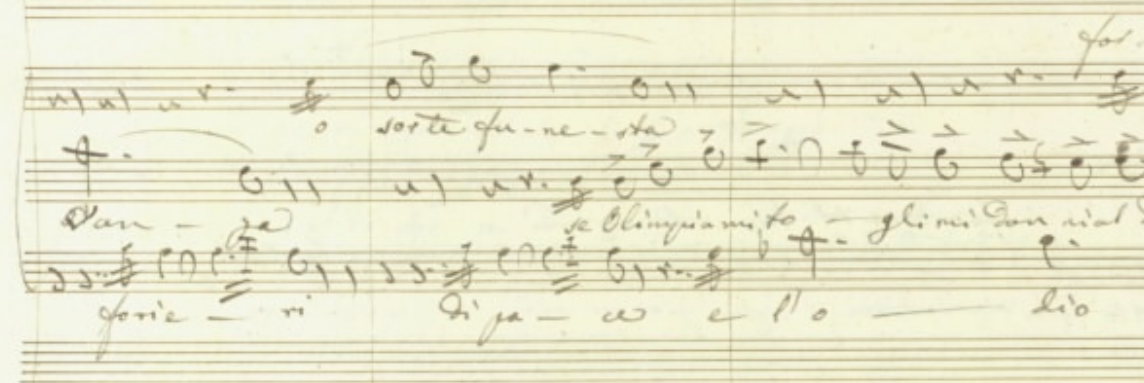 for
o sorte fu-ne-sta
dan - za se Olimpia mi to - gli mi don
forie - ri di pa - ce e l'o dio